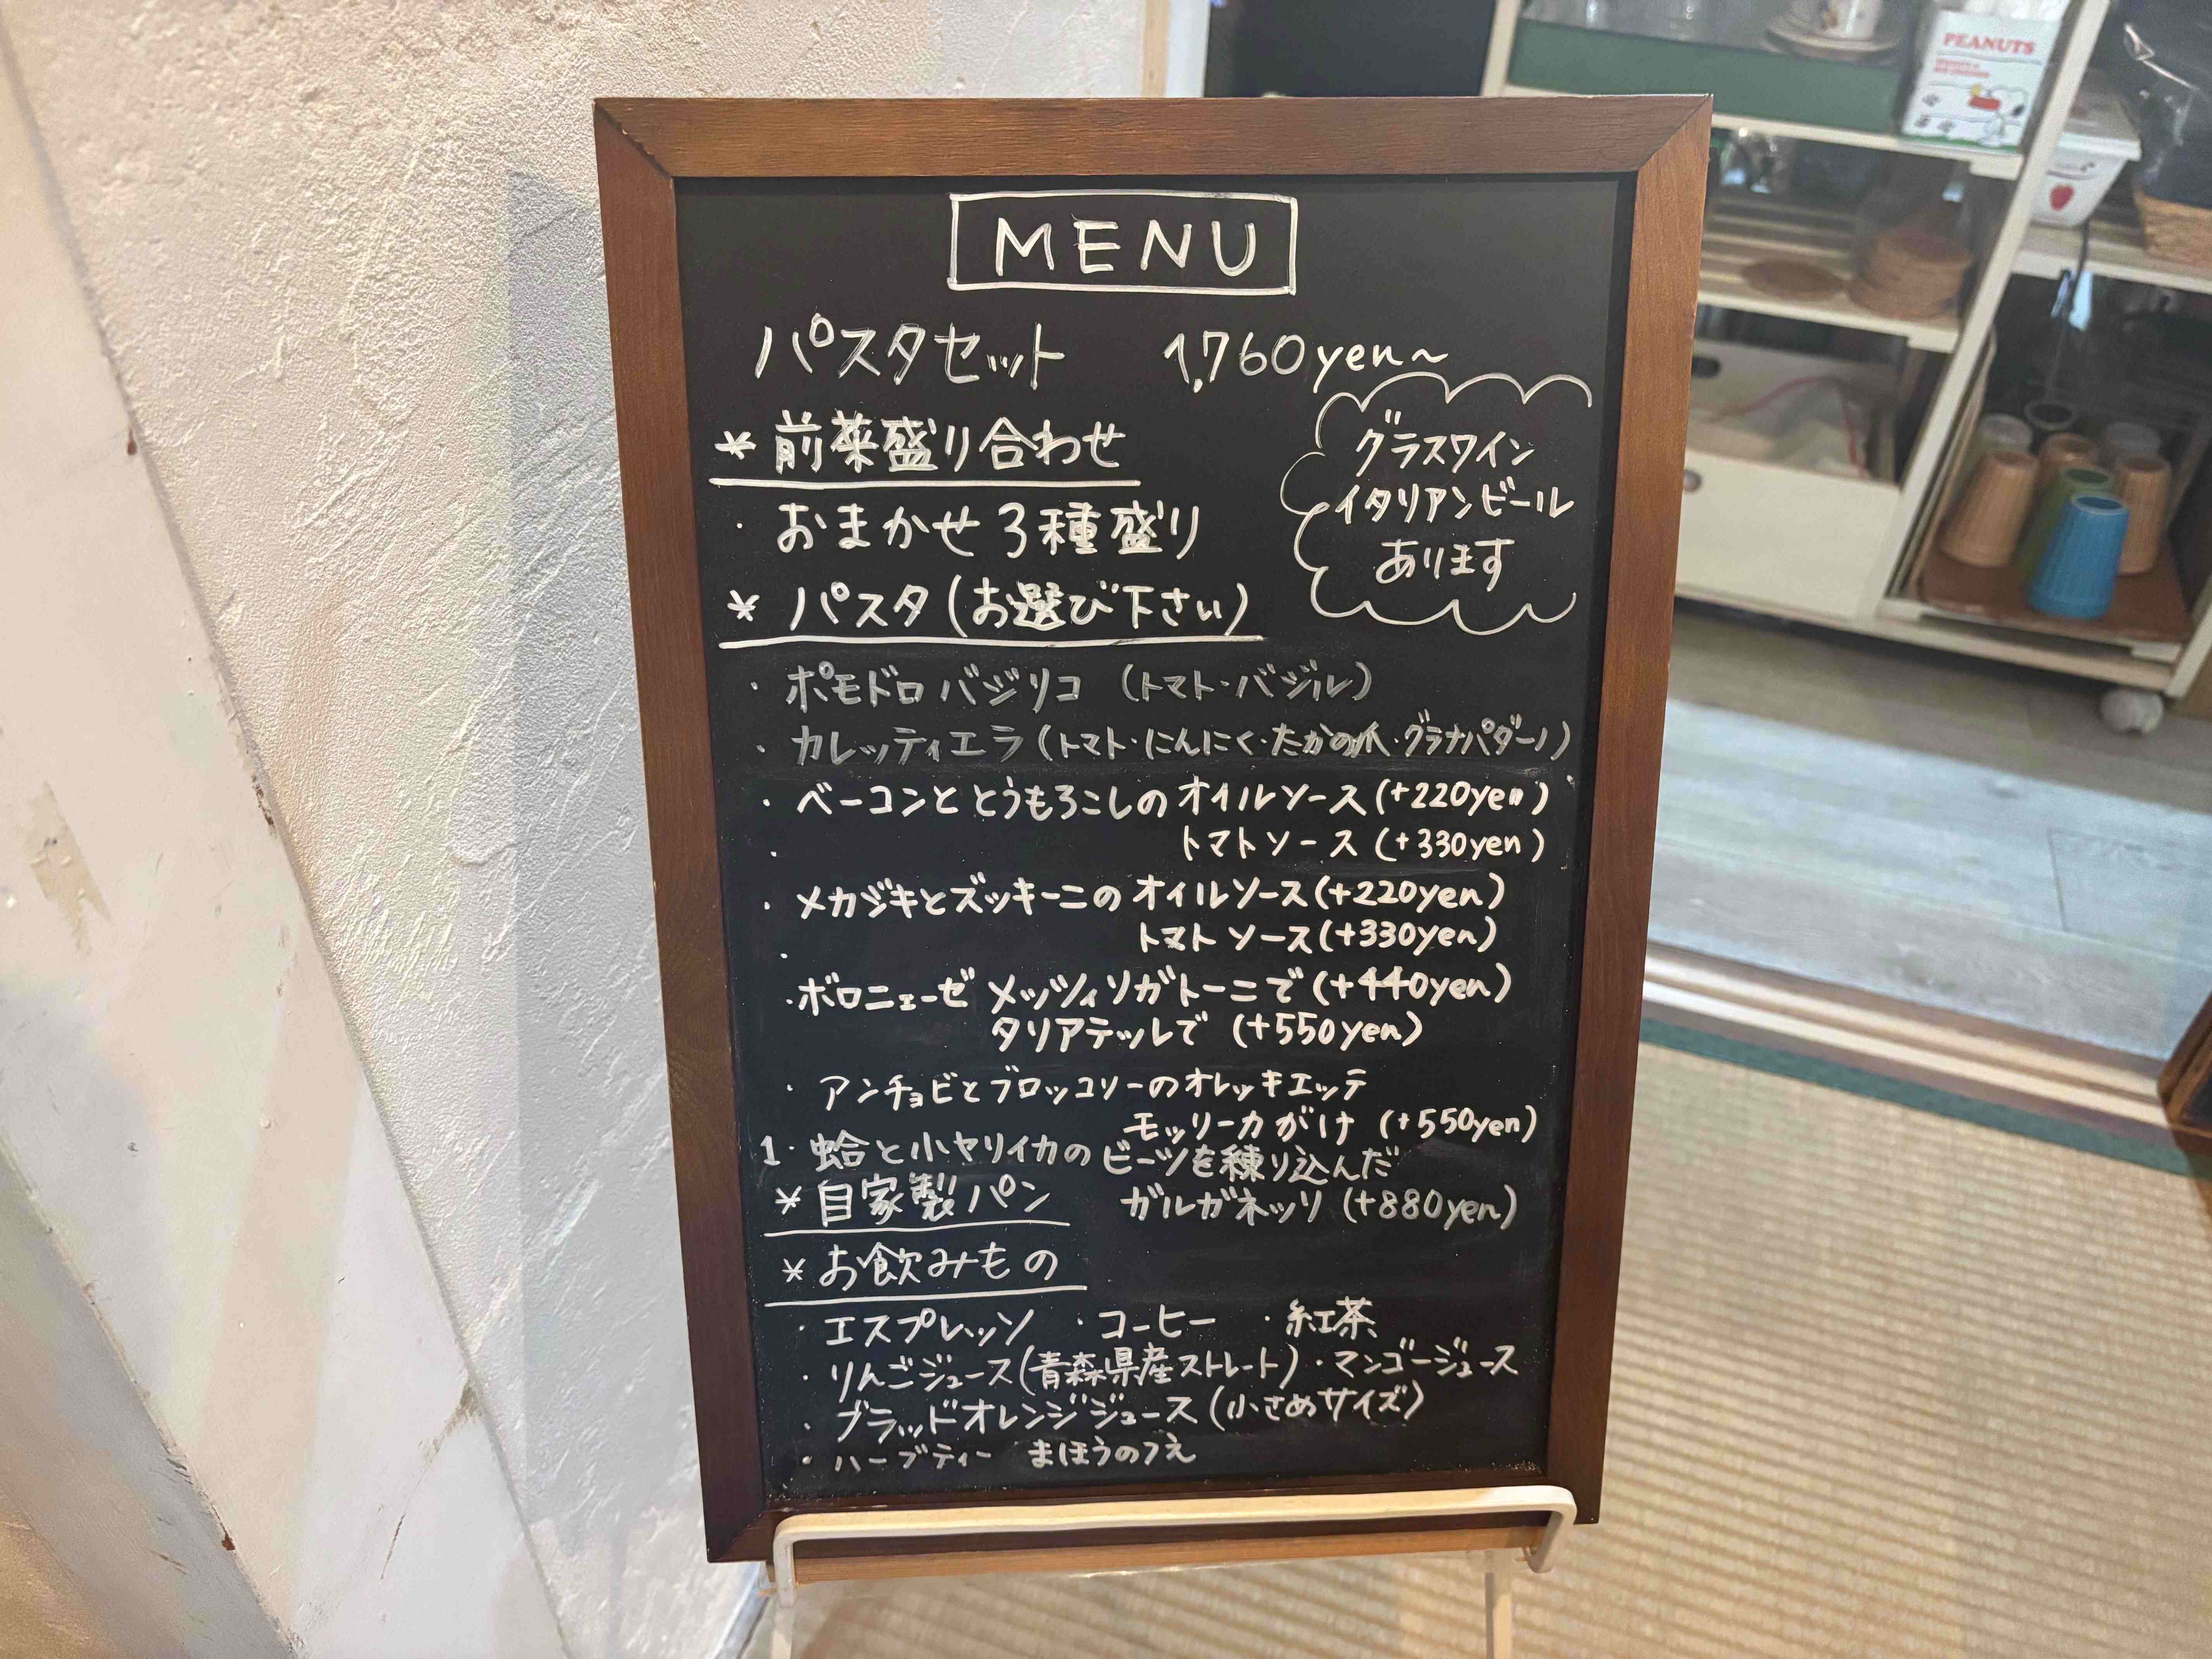 MENU
パスタセット 1,760yen~
*前菜盛り合わせ
・おまかせ3種盛り
グラスワイン
イタリアンビール
あります
*パスタ(お選び下さい)
・ポモドロバジリコ (トマト・バジル)
・カレッティエラ(トマト・にんにく・たかの爪・グラナパダーノ)
・ベーコンととうもろこしのオイルソース(+220yen)
・トマトソース(+330yen)
・メカジキとズッキーニのオイルソース(+220yen)
・トマトソース(+330yen)
・ボロニェーゼ メッツィソガトーニで(+440yen)
タリアテッレで (+550yen)
・アンチョビとブロッコリーのオレッキエッテ
モッリーカがけ (+550yen)
1・蛤と小ヤリイカのビーツを練り込んだ
ガルガネッリ(+880yen)
*自家製パン
*お飲みもの
・エスプレッソ ・コーヒー ・紅茶
・りんごジュース(青森県産ストレート)・マンゴージュース
・ブラッドオレンジジュース(小さめサイズ)
・ハーブティー まほうのつえ
PEANUTS